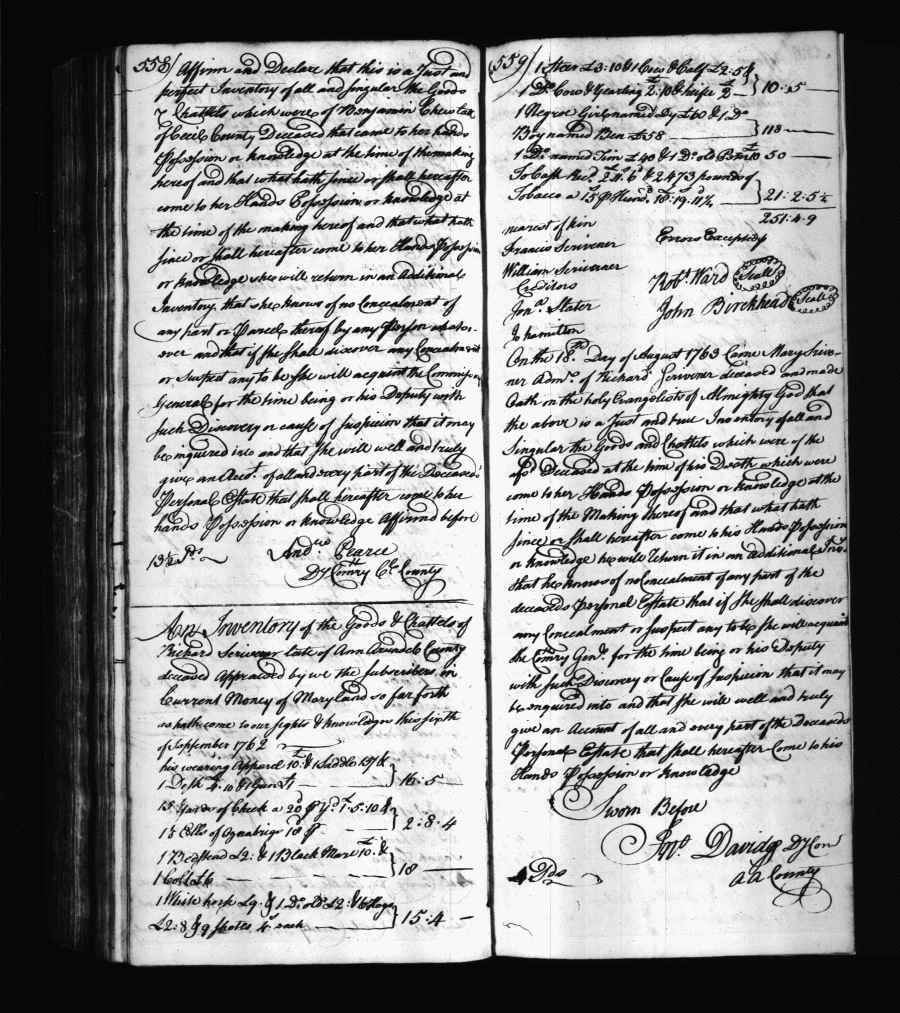 558/ Affirm and Declare that this is a Just and
perfect Inventory of all and singular the Goods
& Chattels which were of Benjamin Chew late
of Cecil County Deceased that came to her hands
Possession or knowledge at the time of the making
hereof and that what hath since or shall hereafter
come to her Hands Possession or knowledge at
the time of the making hereof and that what hath
since or shall hereafter come to her Hands Possession
or knowledge she will return in an Additional
Inventory, that she knows of no Concealment of
any part or Parcel thereof by any Person whatso-
ever and that if she shall discover any Concealment
or Suspect any to be she will acquaint the Commissary
General for the time being or his Deputy with
such Discovery or cause of suspicion that it may
be inquired into and that she will well and truly
give an Acct. of all and every part of the Deceased's
Personal Estate that shall hereafter come to her
hands Possession or knowledge Affirmed before
13½ Ps Andrew Pearce
Dy Comry Cl County
An Inventory of the Goods & Chattels of
Richard Scrivener late of Ann Arundel County
deceased Appraised by we the subscribers in
Current Money of Maryland so far forth
as hath come to our sights & knowledge this sixth
of September 1762
his wearing Apparel £10. & 1 Saddle 15/ &
1 Desk £4.10 & 1 Gun £1 16.5
15 Yards of Check a 20d P Yd £1.5.10 &
15 Ells of Oznabrigs 18d P 2.8.4
1 Bedstead £2: & 1 Black Mare £10. &
1 Colt £6 18
1 White horse £9. & 1 Do. old £2: & 16 Hogs
£2:8 & 9 shotes 4s. each 15:4
559/ 1 Steer £3:10 & 1 Cow & Calf £2:5 &
1 Do Cow & Yearling £2:10 & heifer £2 10:5
1 Negroe Girl named Dy £60 & 1 Do
Boy named Ben £58 118
1 Do. named Jim £40 & 1 Do. old Peter £10 50
To Cash Recd. & 2473 pounds of
Tobacco a 15s P Hund. 18:19:11½ 21:2:5½
251:4:9
nearest of kin
Francis Scrivener Errors Excepted
William Scrivener
Creditors Robt Ward (Seal)
Jona. Slater John Birckhead (Seal)
J hamilton
On the 18th Day of August 1763 Came Mary Scrive-
ner Admx. of Richard Scrivener deceased and made
Oath on the holy Evangelists of Almighty God that
the above is a Just and true Inventory of all and
Singular the Goods and Chattels which were of the
afsd Deceased at the time of his Death which were
come to her Hands Possession or knowledge at the
time of the Making thereof and that what hath
since or shall hereafter come to his Hands Possession
or knowledge he will return it in an additional Invy.
that he knows of no Concealment of any part of the
deceaseds Personal Estate that if She shall discover
any Concealment or suspect any to be She will acquaint
the Comry Genl. for the time being or his Deputy
with such Discovery or Cause of suspicion that it may
be enquired into and that she will well and truly
give an Account of all and every part of the Deceaseds
Personal Estate that shall hereafter Come to his
Hands Possession or knowledge
Sworn Before
Jno. Davidge Dy Com
4 Pds AA County